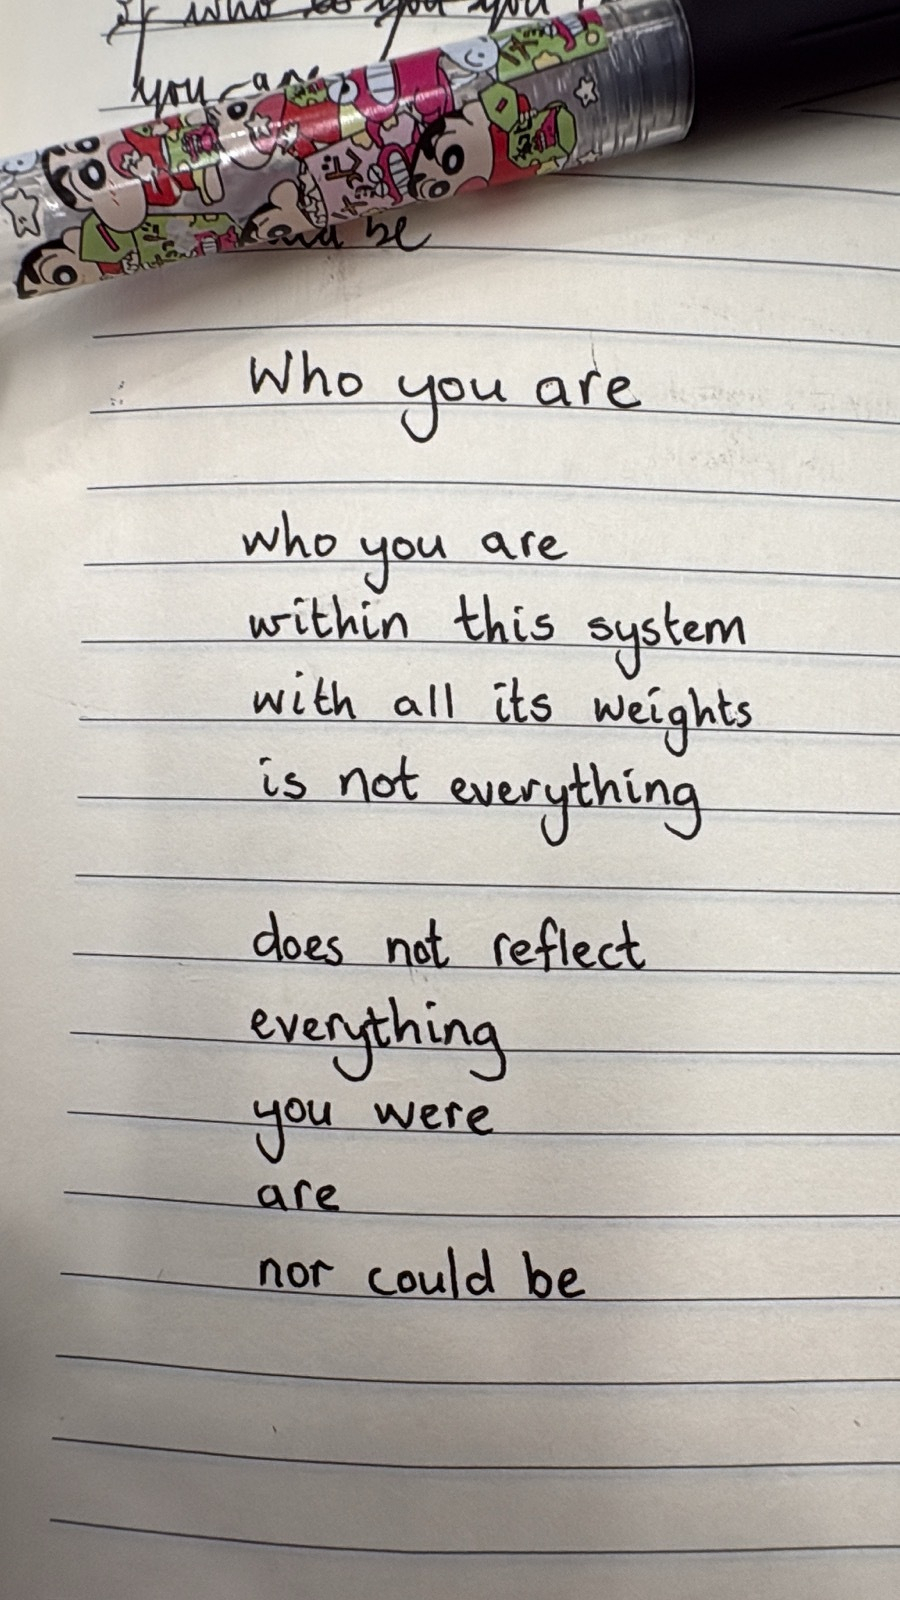 if who
you are
be
Who you are
who you are
within this system
with all its weights
is not everything
does not reflect
everything
you were
are
nor could be